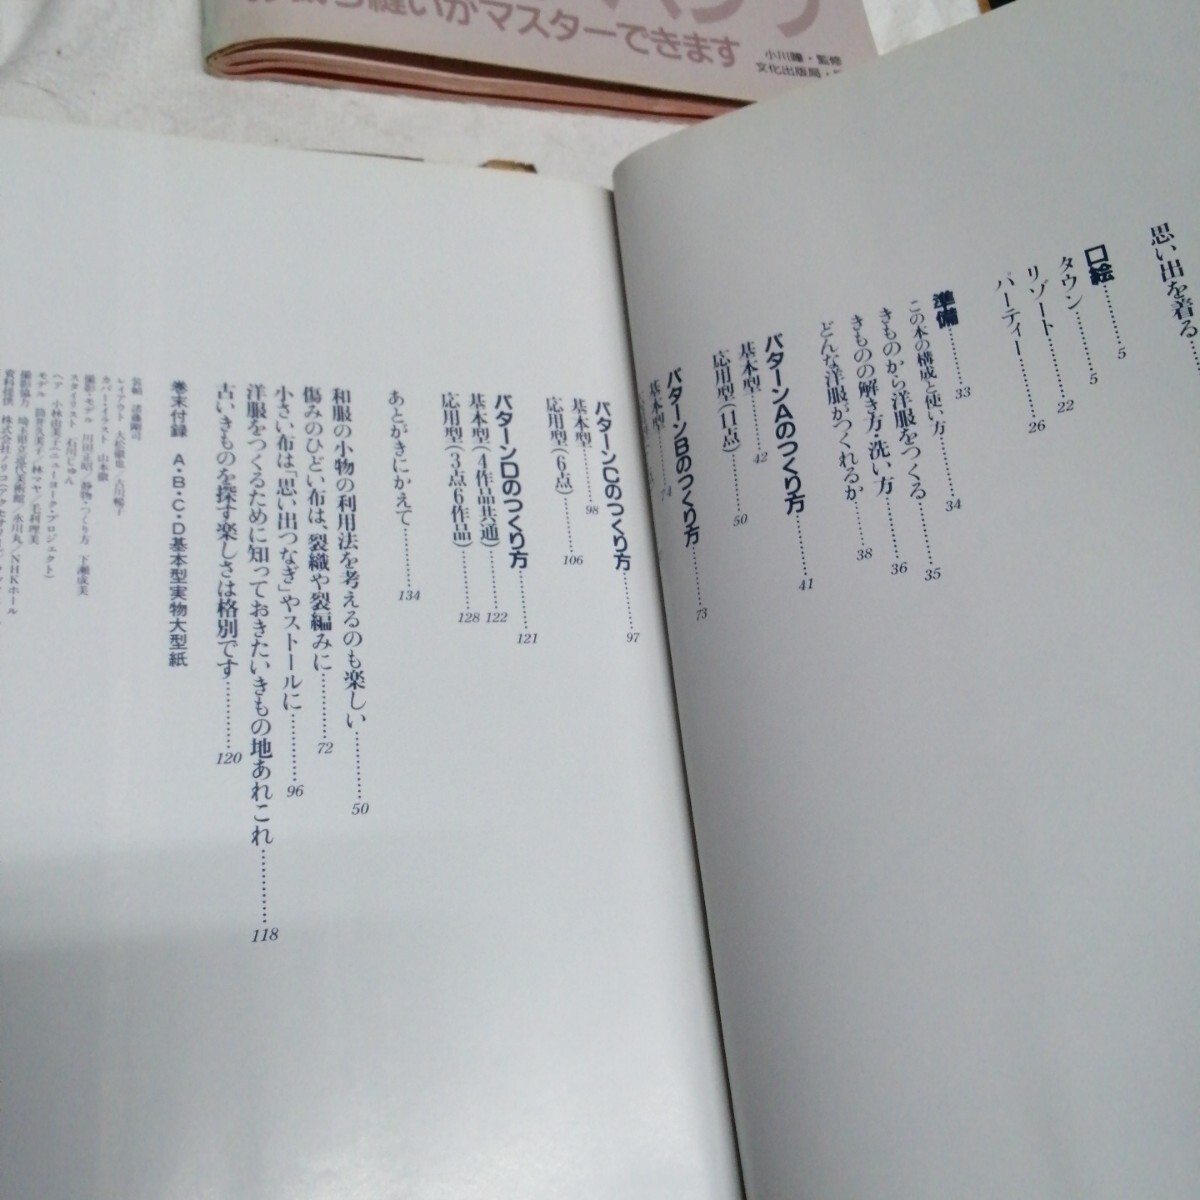 縫いがマスターできます
小川 監修
文化出版局
思い出を着る
口絵……5
タウン……5
リゾート……22
パーティー……26
準備……33
この本の構成と使い方……34
きものから洋服をつくる……35
きものの解き方・洗い方……36
どんな洋服がつくれるか……38
パターンAのつくり方……41
基本型……42
応用型(11点)……50
パターンBのつくり方……73
基本型……74
パターンCのつくり方……97
基本型……98
応用型(6点)……106
パターンDのつくり方……121
基本型(4作品共通)……122
応用型(3点6作品)……128
あとがきにかえて……134
和服の小物の利用法を考えるのも楽しい……50
傷みのひどい布は、裂織や裂編みに……72
小さい布は「思い出つなぎ」やストールに……96
洋服をつくるために知っておきたいきもの地あれこれ……118
古いきものを探す楽しさは格別です……120
巻末付録 A・B・C・D基本型実物大型紙
レイアウト 大松徹也/古川暢子
カバー・イラスト 山本徹
撮影・モデル 川田正昭、静物・つくり方 下瀬成美
スタイリスト 石川じゅん
ヘア 小林由美子(ニューヨーク・プロジェクト)
モデル 筒井久美子/林マヤ/毛利理美
撮影協力 埼玉県立近代美術館/氷川丸/NHKホール